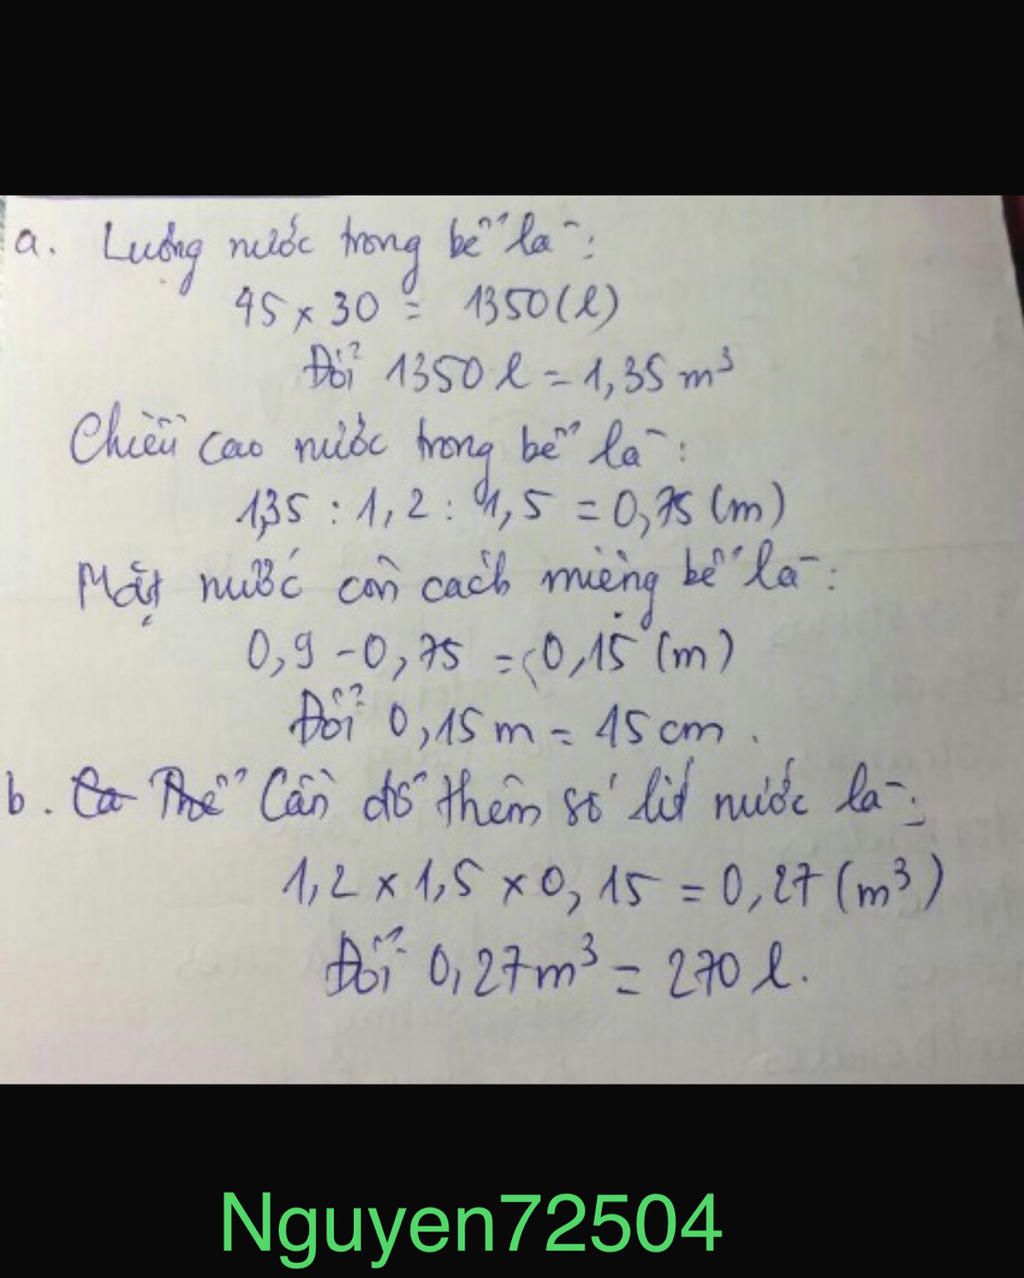 a. Lượng nước trong bể là:
45 x 30 = 1350 (l)
Đổi 1350 l = 1,35 m³
Chiều cao nước trong bể là:
1,35 : 1,2 : 1,5 = 0,75 (m)
Mặt nước còn cách miệng bể là:
0,9 - 0,75 = 0,15 (m)
Đổi 0,15 m = 15 cm.
b. Cần đổ thêm số lít nước là:
1,2 x 1,5 x 0,15 = 0,27 (m³)
Đổi 0,27 m³ = 270 l.
Nguyen72504